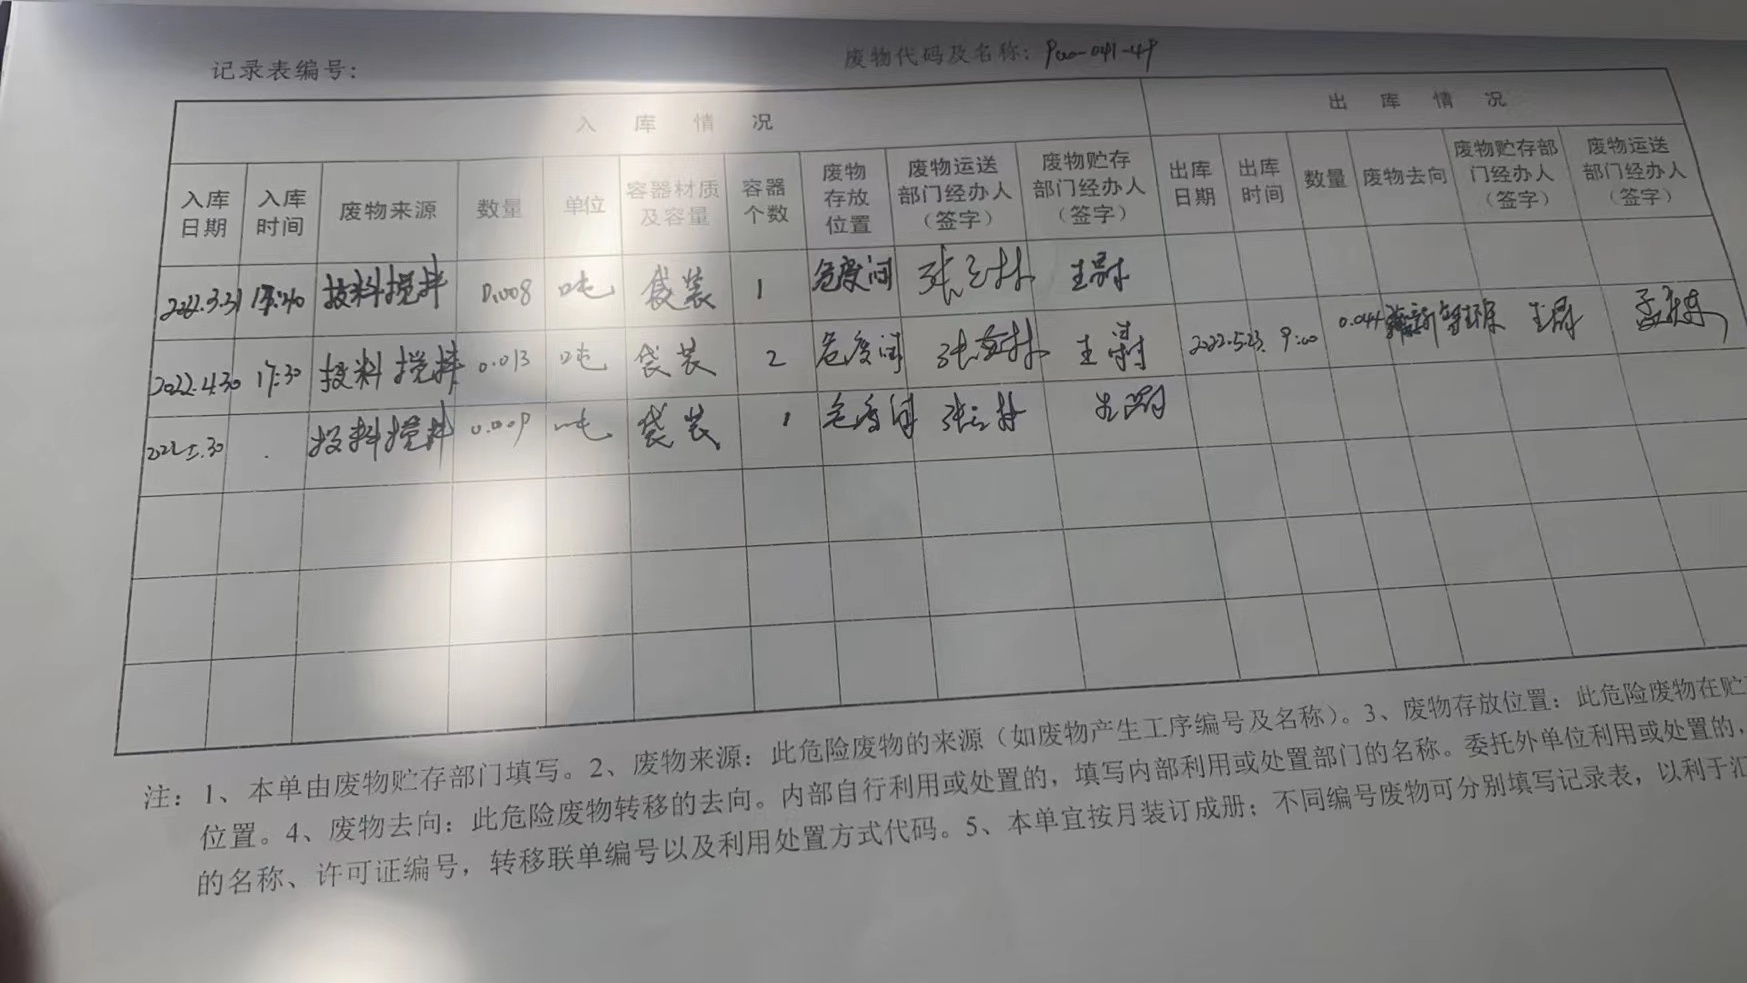 记录表编号： 废物代码及名称：900-041-49
入库情况 出库情况
入库日期 入库时间 废物来源 数量 单位 容器材质及容量 容器个数 废物存放位置 废物运送部门经办人（签字） 废物贮存部门经办人（签字） 出库日期 出库时间 数量 废物去向 废物贮存部门经办人（签字） 废物运送部门经办人（签字）
2022.3.31 投料搅拌 0.008 吨 袋装 1 危废间
2022.4.30 17:30 投料搅拌 0.013 吨 袋装 2 危废间 2022.5.23. 9:00 0.044
2022.5.30 投料搅拌 0.009 吨 袋装 1 危废间
注：1、本单由废物贮存部门填写。2、废物来源：此危险废物的来源（如废物产生工序编号及名称）。3、废物存放位置：此危险废物在贮
位置。4、废物去向：此危险废物转移的去向。内部自行利用或处置的，填写内部利用或处置部门的名称。委托外单位利用或处置的，
的名称、许可证编号，转移联单编号以及利用处置方式代码。5、本单宜按月装订成册；不同编号废物可分别填写记录表，以利于汇